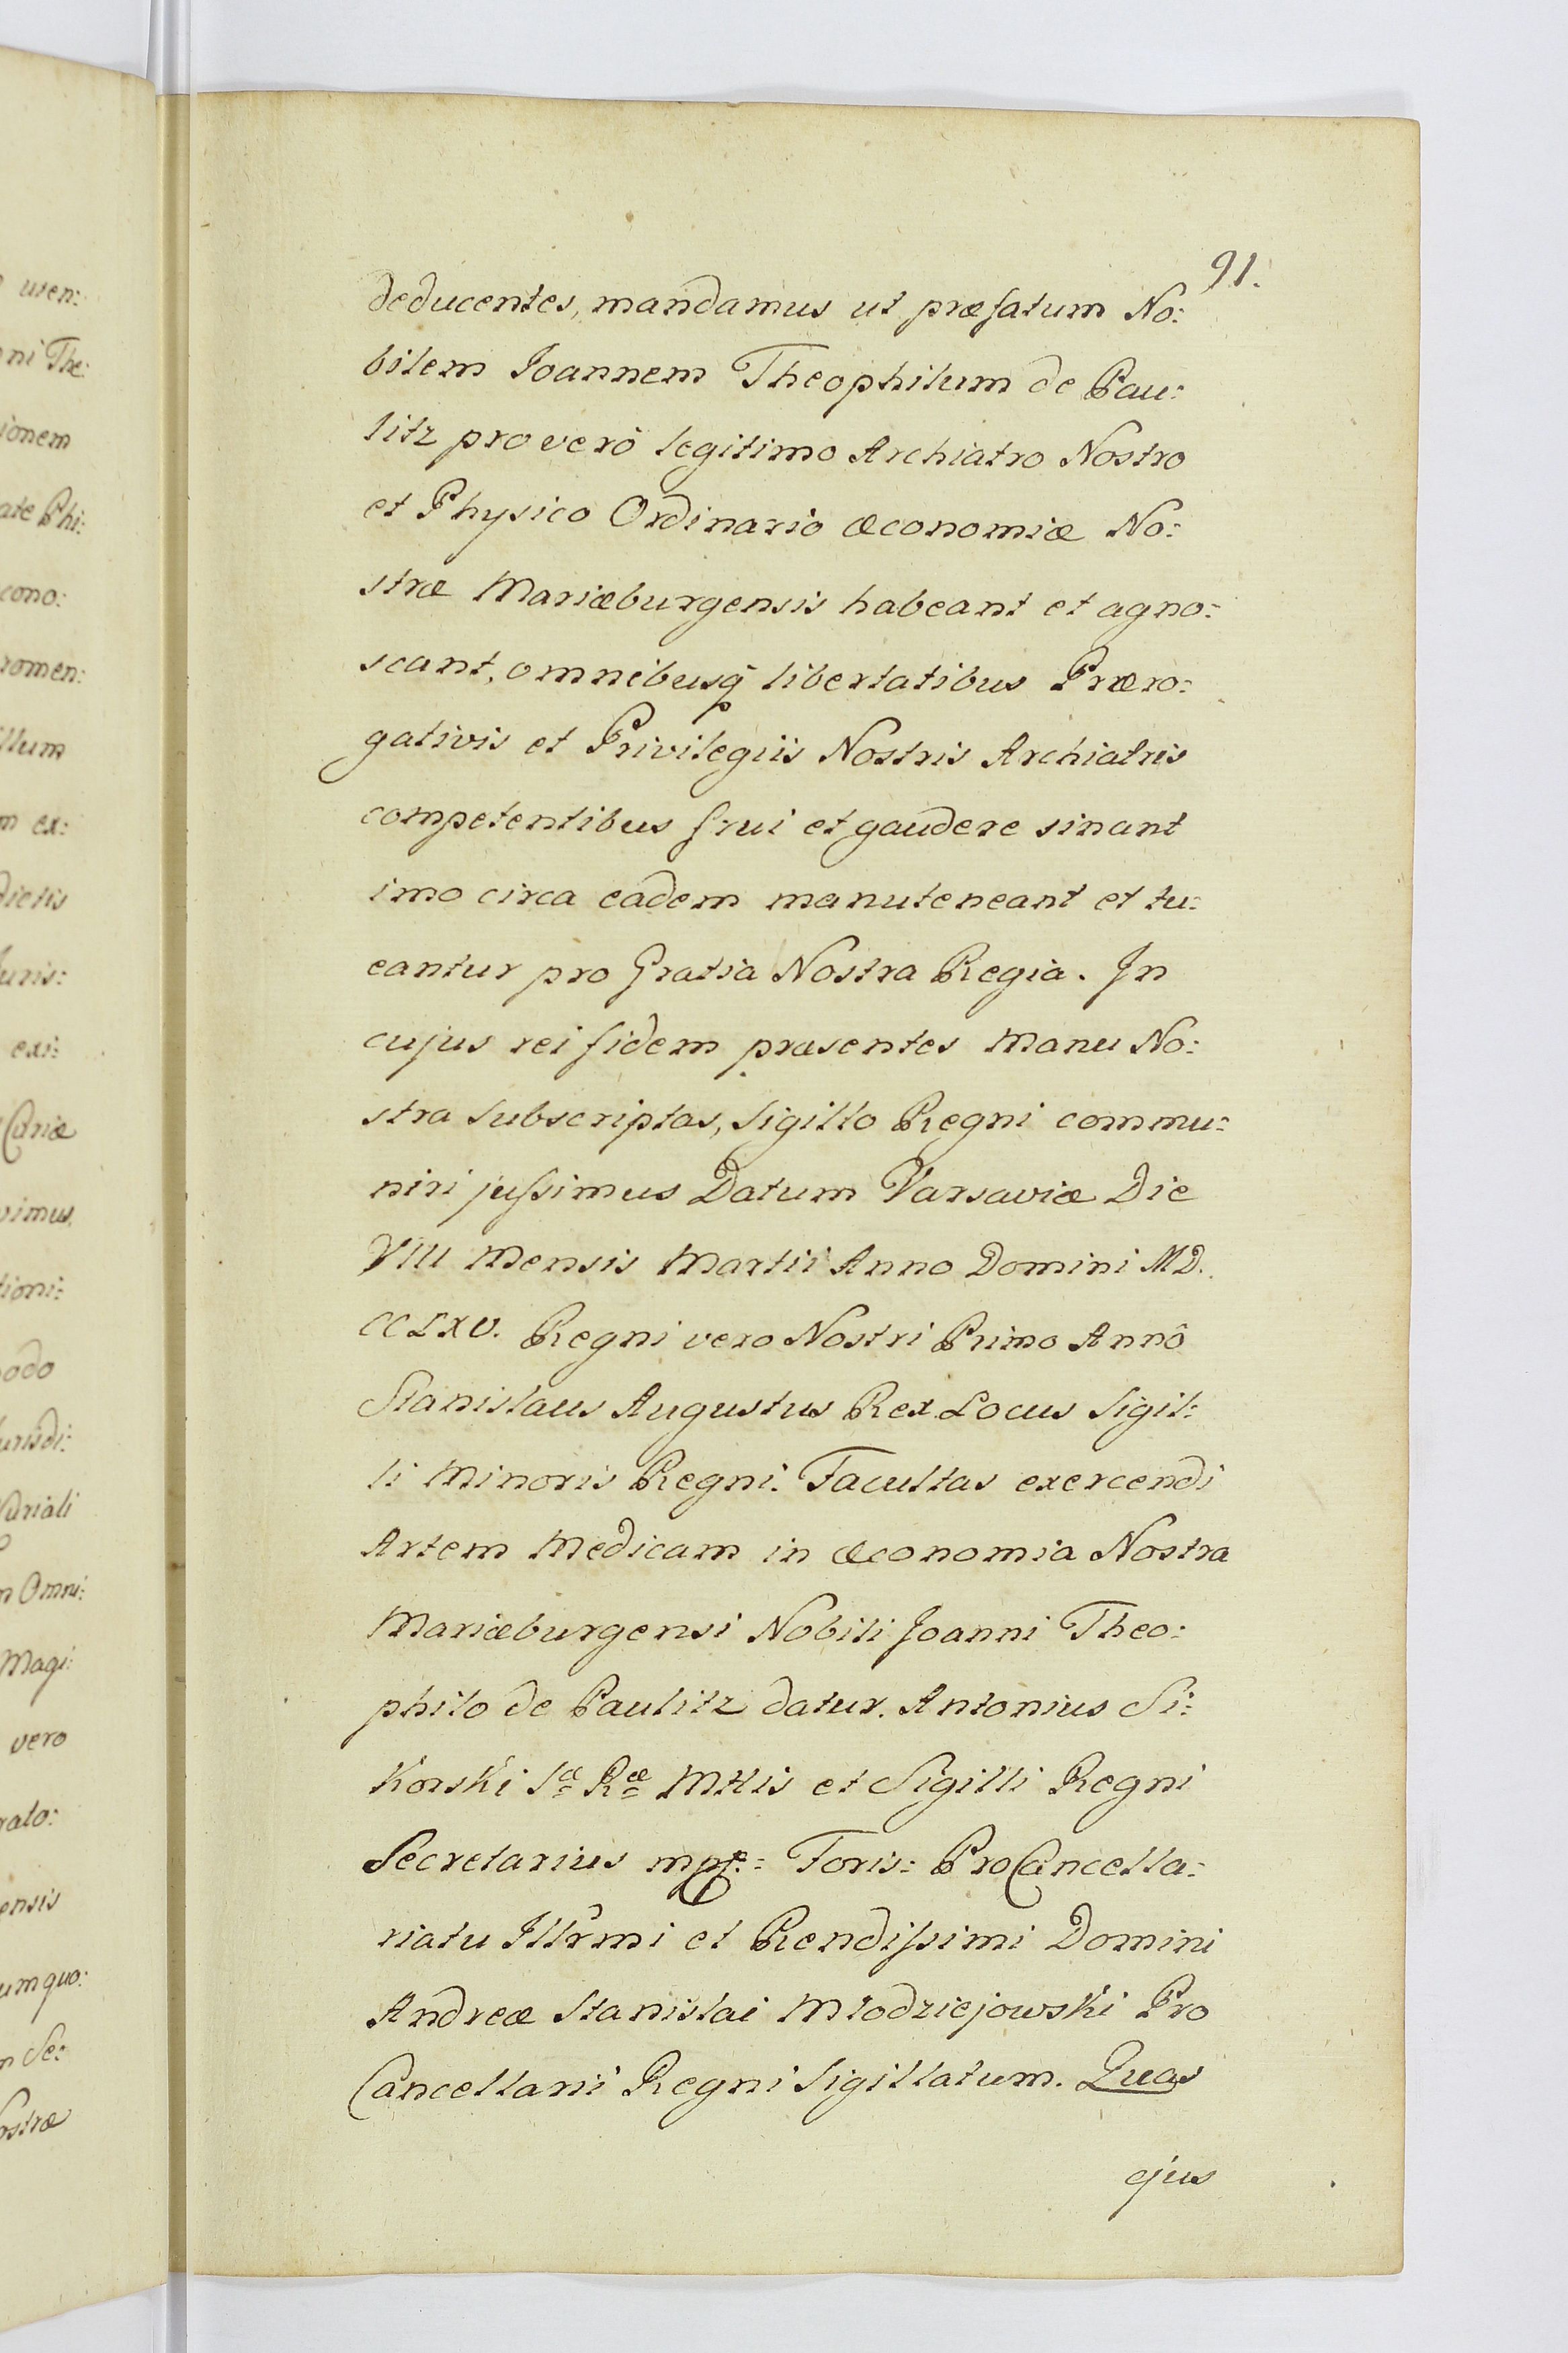 91.
deducentes, mandamus ut præfatum No:
bilem Joannem Theophilum de Pau:
litz pro verô legitimo Archiatro Nostro
et Physico Ordinario œconomiæ No:
stræ Mariæburgensis habeant et agno:
scant, omnibusq̃ libertatibus Præro:
gativis et Privilegiis Nostris Archiatris
competentibus frui et gaudere sinant
imo circa eadem manuteneant et tu:
eantur pro Gratia Nostra Regia. In
cujus rei fidem præsentes Manu No:
stra subscriptas, Sigillo Regni commu:
niri jussimus Datum Varsaviæ Die
VIII Mensis Martii Anno Domini MD.
CCLXV. Regni vero Nostri Primo Annô
Stanislaus Augustus Rex Locus Sigil:
li Minoris Regni. Facultas exercendi
Artem Medicam in œconomia Nostra
Mariæburgensi Nobili Joanni Theo:
philo de Paulitz datur. Antonius Si:
korski Sæ Ræ Mttis et Sigilli Regni
Secretarius mp: Foris: ProCancella:
riatu Illrmi et Rendissimi Domini
Andreæ Stanislai Młodziejowski Pro
Cancellarii Regni Sigillatum. Quas
ejus
usen:
ni The:
ionem
ate Phi:
cono:
romen:
llum
m ex:
dictis
Juris:
exi:
Curiæ
vimus.
tioni:
odo
urisdi:
Curiali
n Omni:
Magi:
vero
rato:
ensis
umquo:
n Se:
ostræ